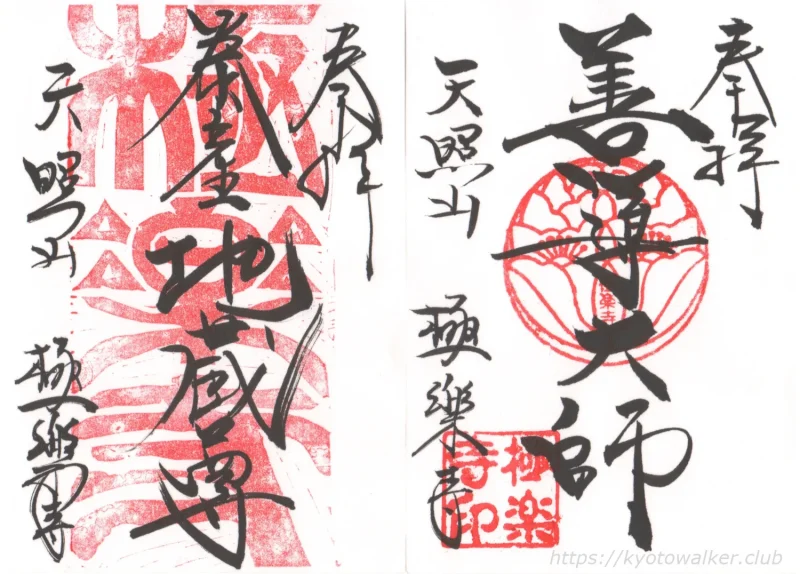 奉拝
善導大師
天照山
極楽寺
極楽
寺印
奉拝
地蔵尊
天照山
極楽寺
https://kyotowalker.club